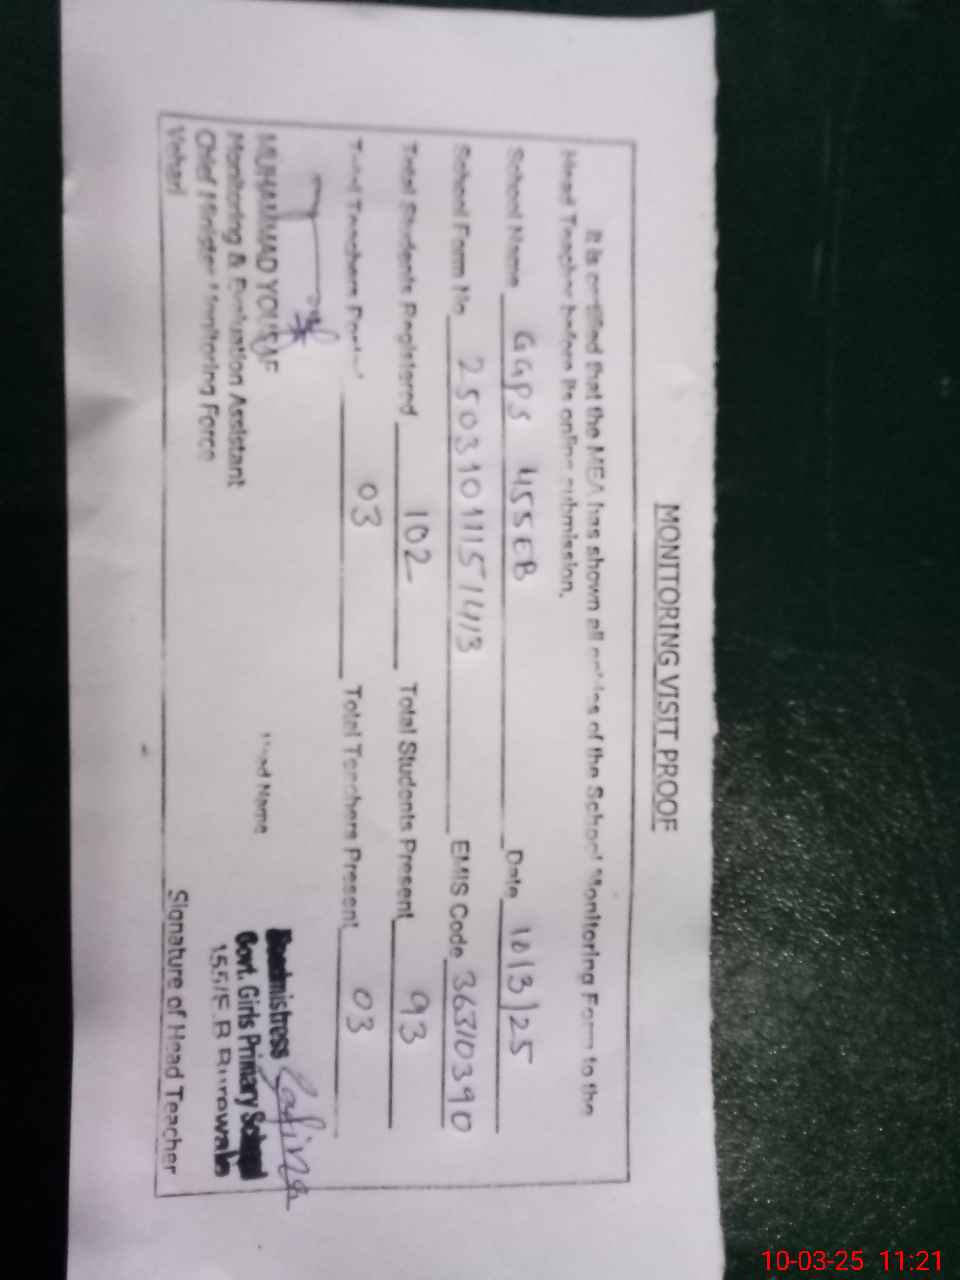 MONITORING VISIT PROOF
It is certified that the MEA has shown all entries of the School Monitoring Form to the
Head Teacher before its online submission.
School Name GGPS 455EB Date 10/3/25
School Form No EMIS Code 36310390
Total Students Registered 102 Total Students Present 93
Total Teachers 03 Total Teachers Present 03
MUHAMMAD YOUSAF
Monitoring & Evaluation Assistant
Chief Minister Monitoring Force
Vehari
Head Name
Headmistress
Govt. Girls Primary School
Burewala
Signature of Head Teacher
10-03-25 11:21